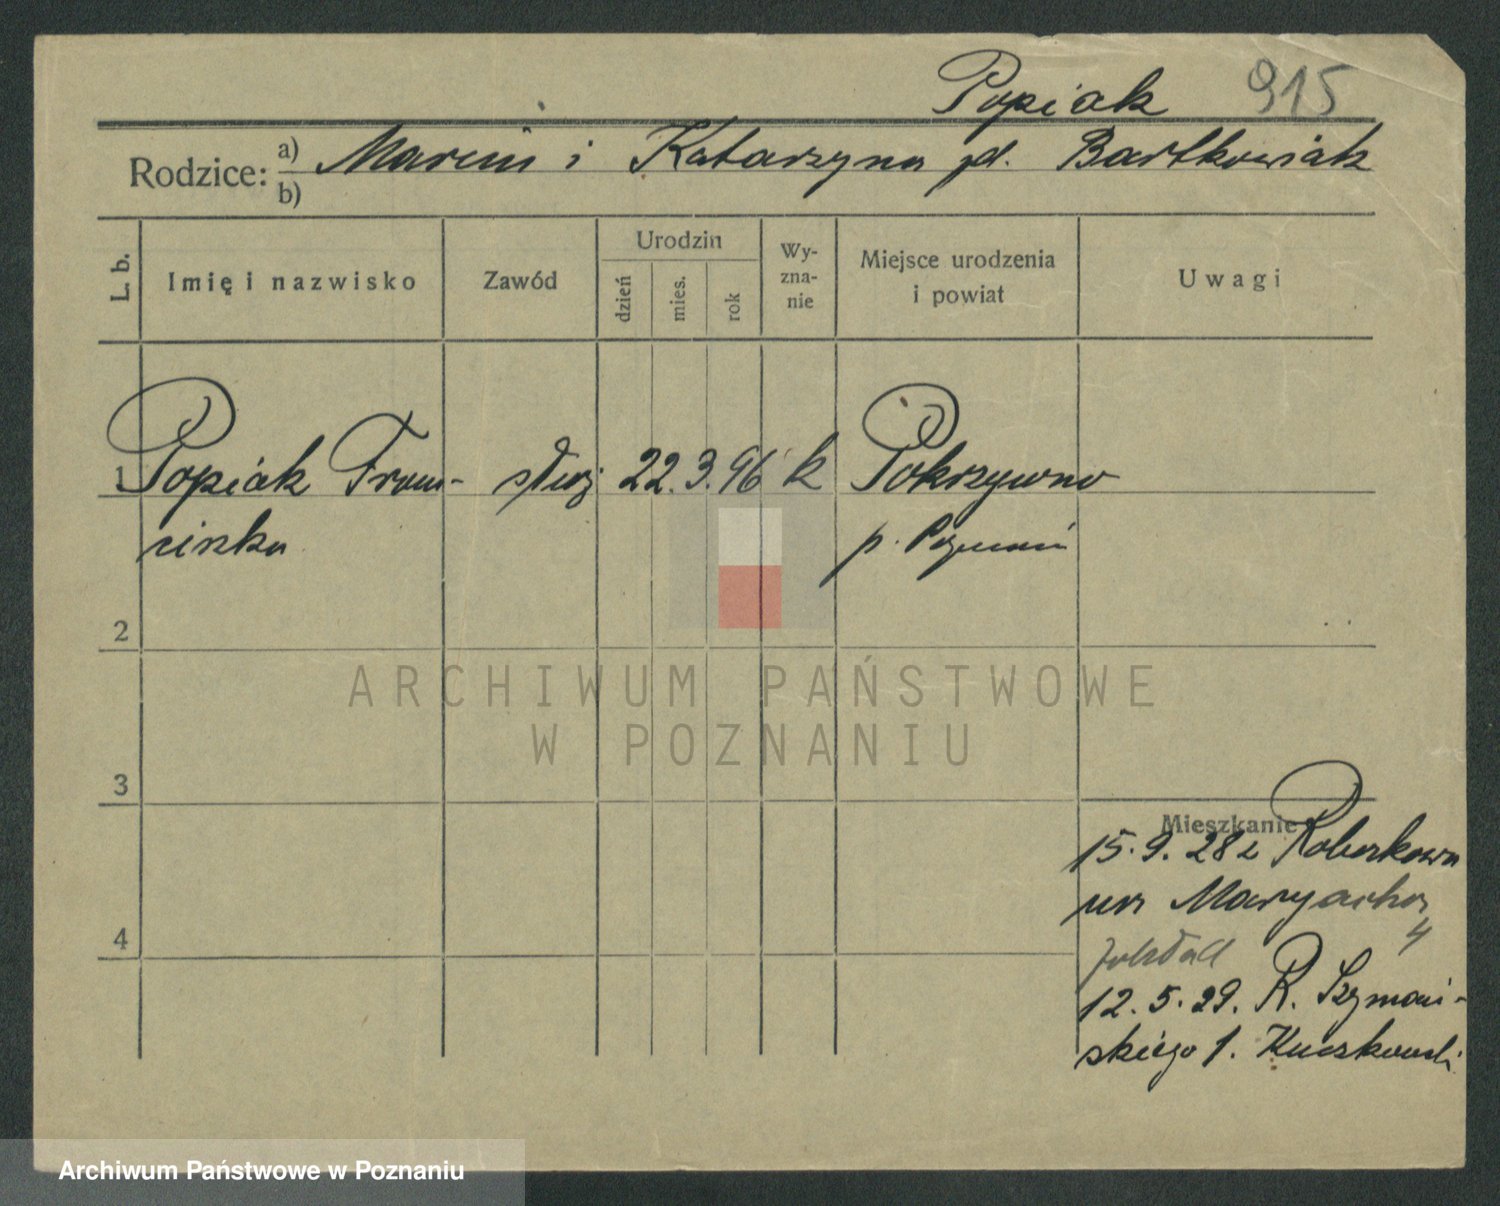 Popiak 915
Rodzice: a) Marcin i Katarzyna zd. Bartkowiak
b)
L. b.
Imię i nazwisko
Zawód
Urodzin
dzień mies. rok
Wy-
zna-
nie
Miejsce urodzenia
i powiat
Uwagi
1 Popiak Fran- służ 22.3.96 k Pokrzywno
ciszka p. Poznań
2
3
4
Mieszkanie
15.9.28 z
ur. 4
12.5.29. R. Szymań-
skiego 1. Kuczkowski
ARCHIWUM PAŃSTWOWE
W POZNANIU
Archiwum Państwowe w Poznaniu